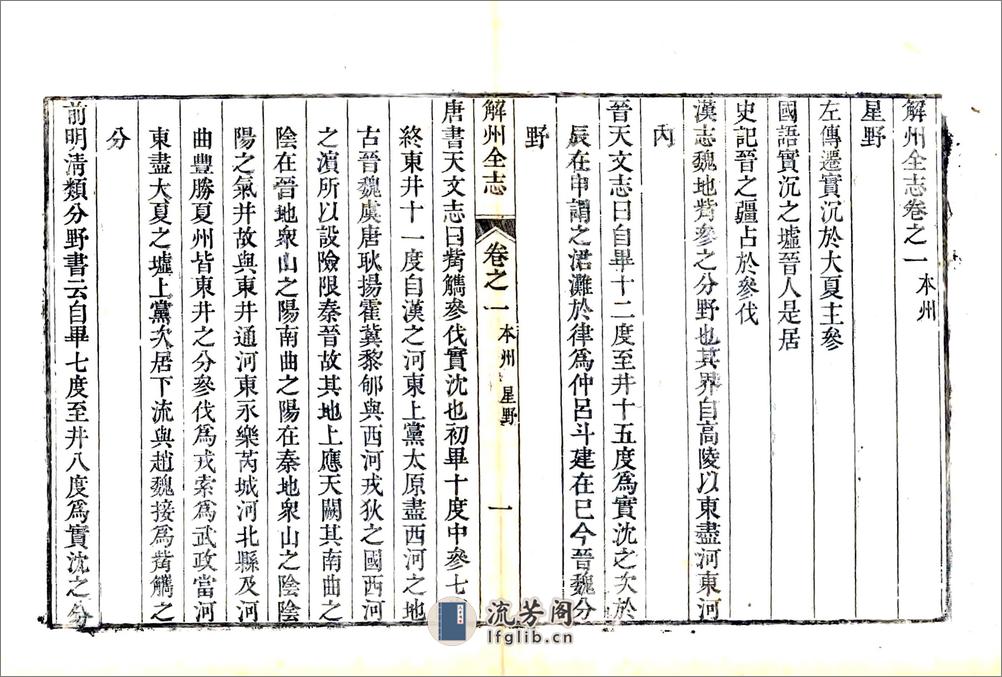 解州全志卷之一 本州
星野
左傳遷實沉於大夏主參
國語實沉之墟晉人是居
史記晉之疆占於參伐
漢志魏地觜參之分野也其界自高陵以東盡河東河
內
晉天文志曰自畢十二度至井十五度爲實沈之次於
辰在申謂之涒灘於律爲仲呂斗建在巳今晉魏分
野
解州全志 卷之一 本州 星野 一
唐書天文志曰觜觿參伐實沈也初畢十度中參七
終東井十一度自漢之河東上黨太原盡西河之地
古晉魏虞唐耿揚霍冀黎郇與西河戎狄之國西河
之濵所以設險限秦晉故其地上應天闕其南曲之
陰在晉地衆山之陽南曲之陽在秦地衆山之陰陰
陽之氣井故與東井通河東永樂芮城河北縣及河
曲豐勝夏州皆東井之分參伐爲戎索爲武政當河
東盡大夏之墟上黨次居下流與趙魏接爲觜觿之
分
前明清類分野書云自畢七度至井八度爲實沈之分
流芳阁
lfglib.cn